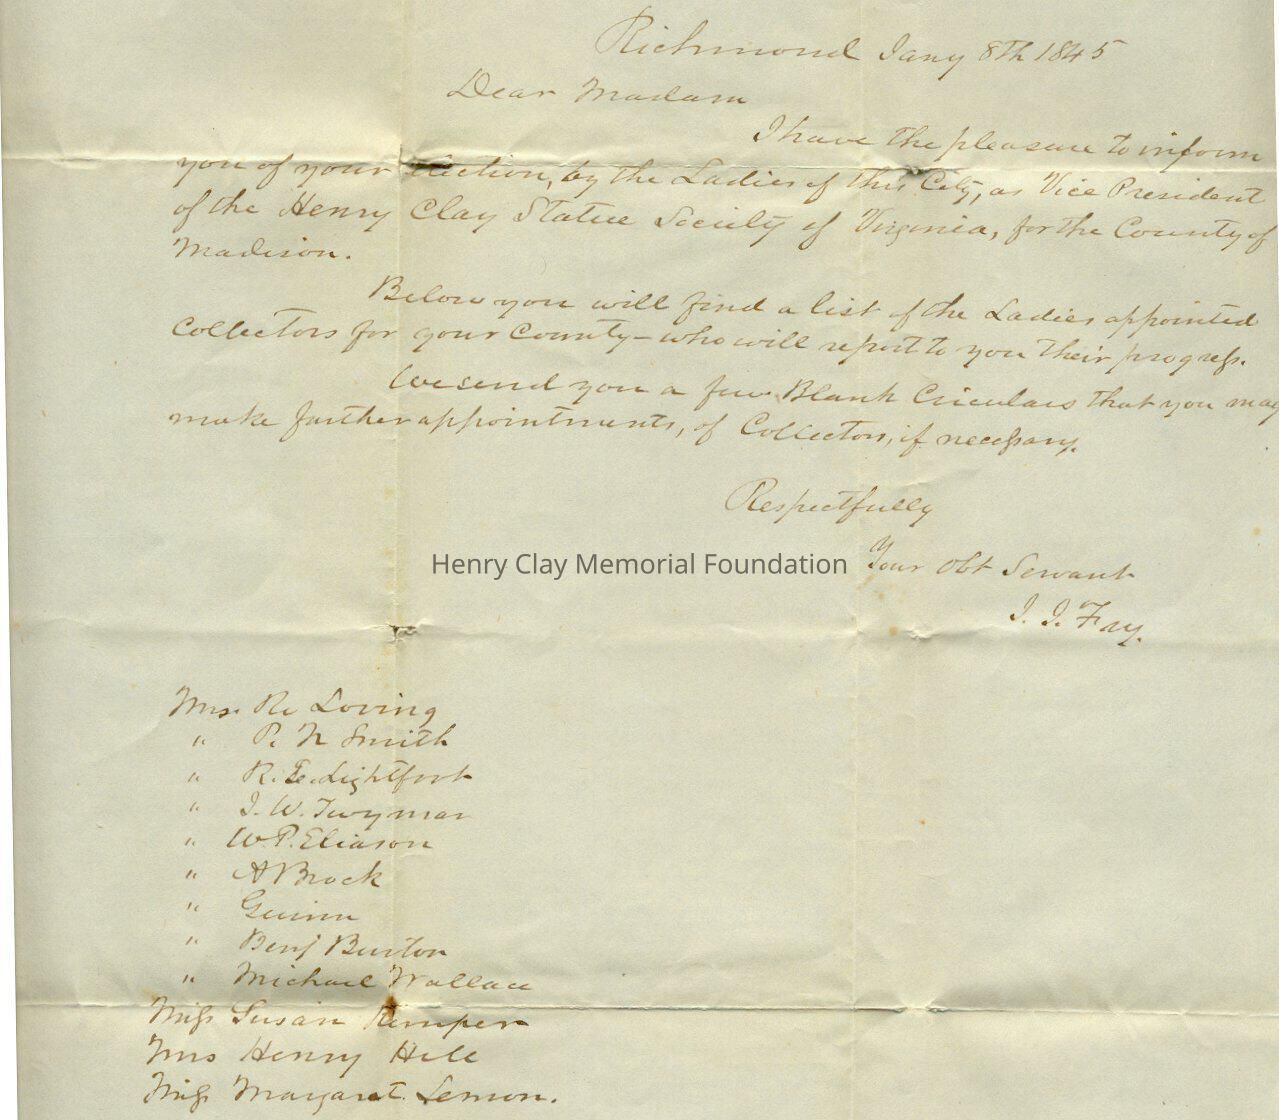 Richmond Jany 8th 1845
Dear Madam
I have the pleasure to inform
you of your election, by the Ladies of this City, as Vice President
of the Henry Clay Statue Society of Virginia, for the County of
Madison.
Below you will find a list of the Ladies appointed
Collectors for your County - who will report to you their progress.
We send you a few Blank Circulars that you may
make further appointments, of Collectors, if necessary.
Respectfully
Your Obt Servant
J. J. Fay.
Henry Clay Memorial Foundation
Mrs. R. Loving
" P. N Smith
" R. E. Lightfoot
" J. W. Twyman
" W. P. Eliason
" A Brock
" Guinn
" Benj Burton
" Michael Wallace
Miss Susan Kemper
Mrs Henry Hill
Miss Margaret Lemon.